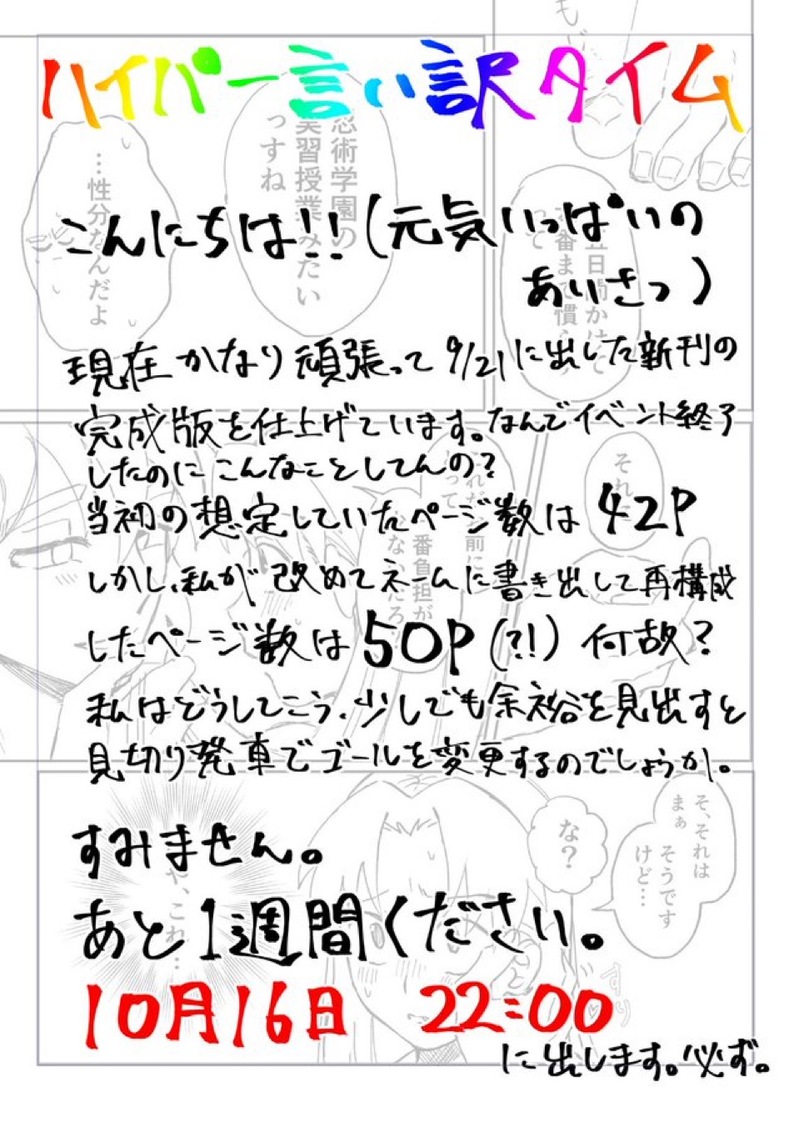 ハイパー言い訳タイム
こんにちは!!(元気いっぱいの
あいさつ)
現在 かなり 頑張って 9/21に出した新刊の
完成版を仕上げています。なんでイベント終了
したのに こんなことしてんの?
当初の想定していたページ数は 42P
しかし、私が 改めてネームに書き出して再構成
したページ数は 50P (?!) 何故?
私はどうしてこう、少しでも余裕を見出すと
見切り発車でゴールを変更するのでしょうか。
すみません。
あと1週間ください。
10月16日 22:00
に出します。必ず。
忍術学園の
実習授業みたい
っすね
…性分なんだよ
も
それ
な?
そ、それは
まぁ そうです
けど…
これ…
すり